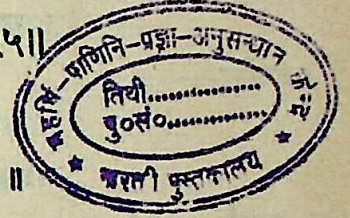 ५॥
महर्षि-पाणिनि-प्रज्ञा-अनुसन्धान केन्द्र
तिथी..................
पु०सं०..................
★ भारती पुस्तकालय ★
॥